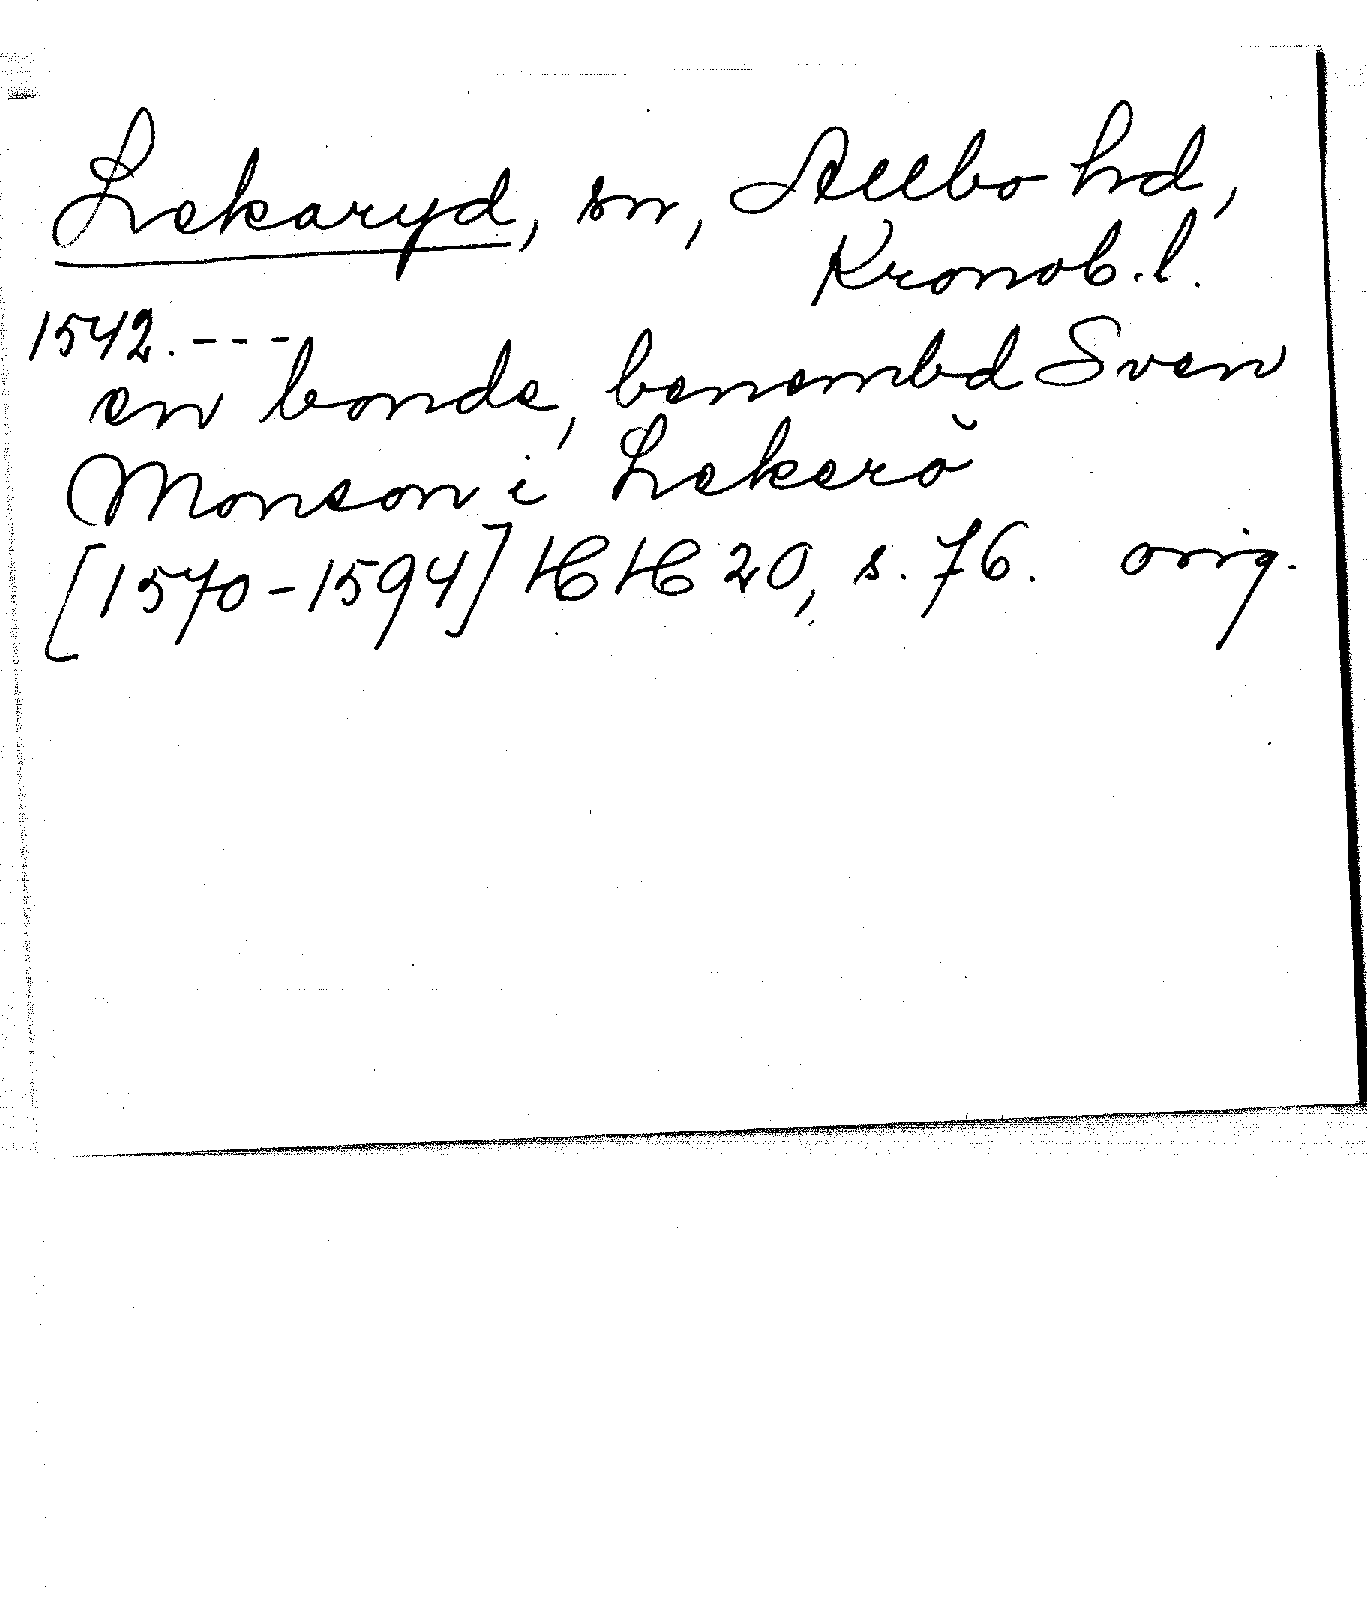 Lekaryd, sn, Allbo hd,
Kronob. l.
1542. - - -
en bonde, benembd Sven
Monson i Lekerŏ
[1570-1594] HH 20, s. 76. orig.